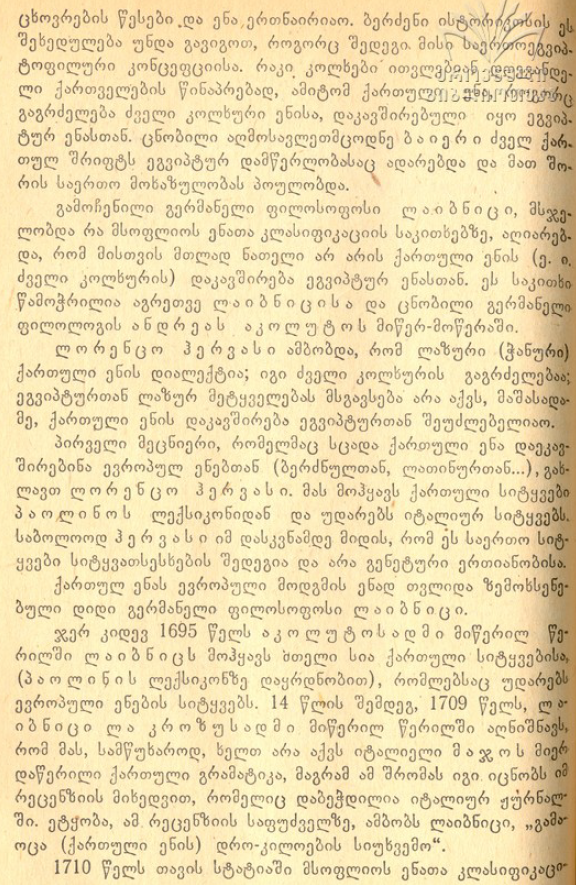 ცხოვრების წესები და ენა ერთნაირიაო. ბერძენი ისტორიკოსის ეს
შეხედულება უნდა გავიგოთ, როგორც შედეგი მისი საერთოეგვიპ-
ტოფილური კონცეფციისა. რაკი კოლხები ითვლებიან
ლი ქართველების წინაპრებად, ამიტომ ქართული ენა, როგორც
გაგრძელება ძველი კოლხური ენისა, დაკავშირებული იყო ეგვიპ-
ტურ ენასთან. ცნობილი აღმოსავლეთმცოდნე ბაიერი ძველ ქარ-
თულ შრიფტს ეგვიპტურ დამწერლობასაც ადარებდა და მათ შო-
რის საერთო მოხაზულობას პოულობდა.
გამოჩენილი გერმანელი ფილოსოფოსი ლაიბნიცი, მსჯე-
ლობდა რა მსოფლიოს ენათა კლასიფიკაციის საკითხებზე, აღიარებ-
და, რომ მისთვის მთლად ნათელი არ არის ქართული ენის (ე. ი.
ძველი კოლხურის) დაკავშირება ეგვიპტურ ენასთან. ეს საკითხი
წამოჭრილია აგრეთვე ლაიბნიცისა და ცნობილი გერმანელი
ფილოლოგის ანდრეას აკოლუტოს მიწერ-მოწერაში.
ლორენცო ჰერვასი ამბობდა, რომ ლაზური (ჭანური)
ქართული ენის დიალექტია; იგი ძველი კოლხურის გაგრძელებაა;
ეგვიპტურთან ლაზურ მეტყველებას მსგავსება არა აქვს, მაშასადა-
მე, ქართული ენის დაკავშირება ეგვიპტურთან შეუძლებელიაო.
პირველი მეცნიერი, რომელმაც სცადა ქართული ენა დაეკავ-
შირებინა ევროპულ ენებთან (ბერძნულთან, ლათინურთან...), გახ-
ლავთ ლორენცო ჰერვასი. მას მოჰყავს ქართული სიტყვები
პაოლინოს ლექსიკონიდან და უდარებს იტალიურ სიტყვებს.
საბოლოოდ ჰერვასი იმ დასკვნამდე მიდის, რომ ეს საერთო სიტ-
ყვები სიტყვათსესხების შედეგია და არა გენეტური ერთიანობისა.
ქართულ ენას ევროპული მოდგმის ენად თვლიდა ზემოხსენე-
ბული დიდი გერმანელი ფილოსოფოსი ლაიბნიცი.
ჯერ კიდევ 1695 წელს აკოლუტოსადმი მიწერილ წე-
რილში ლაიბნიცს მოჰყავს მთელი სია ქართული სიტყვებისა,
(პაოლინის ლექსიკონზე დაყრდნობით), რომლებსაც უდარებს
ევროპული ენების სიტყვებს. 14 წლის შემდეგ, 1709 წელს, ლა-
იბნიცი ლა კროზუსადმი მიწერილ წერილში აღნიშნავს,
რომ მას, სამწუხაროდ, ხელთ არა აქვს იტალიელი მაჯოს მიერ
დაწერილი ქართული გრამატიკა, მაგრამ ამ შრომას იგი იცნობს იმ
რეცენზიის მიხედვით, რომელიც დაბეჭდილია იტალიურ ჟურნალ-
ში. ეტყობა, ამ რეცენზიის საფუძველზე, ამბობს ლაიბნიცი, „გამა-
ოცა (ქართული ენის) დრო-კილოების სიუხვემო“.
1710 წელს თავის სტატიაში მსოფლიოს ენათა კლასიფიკაცი-